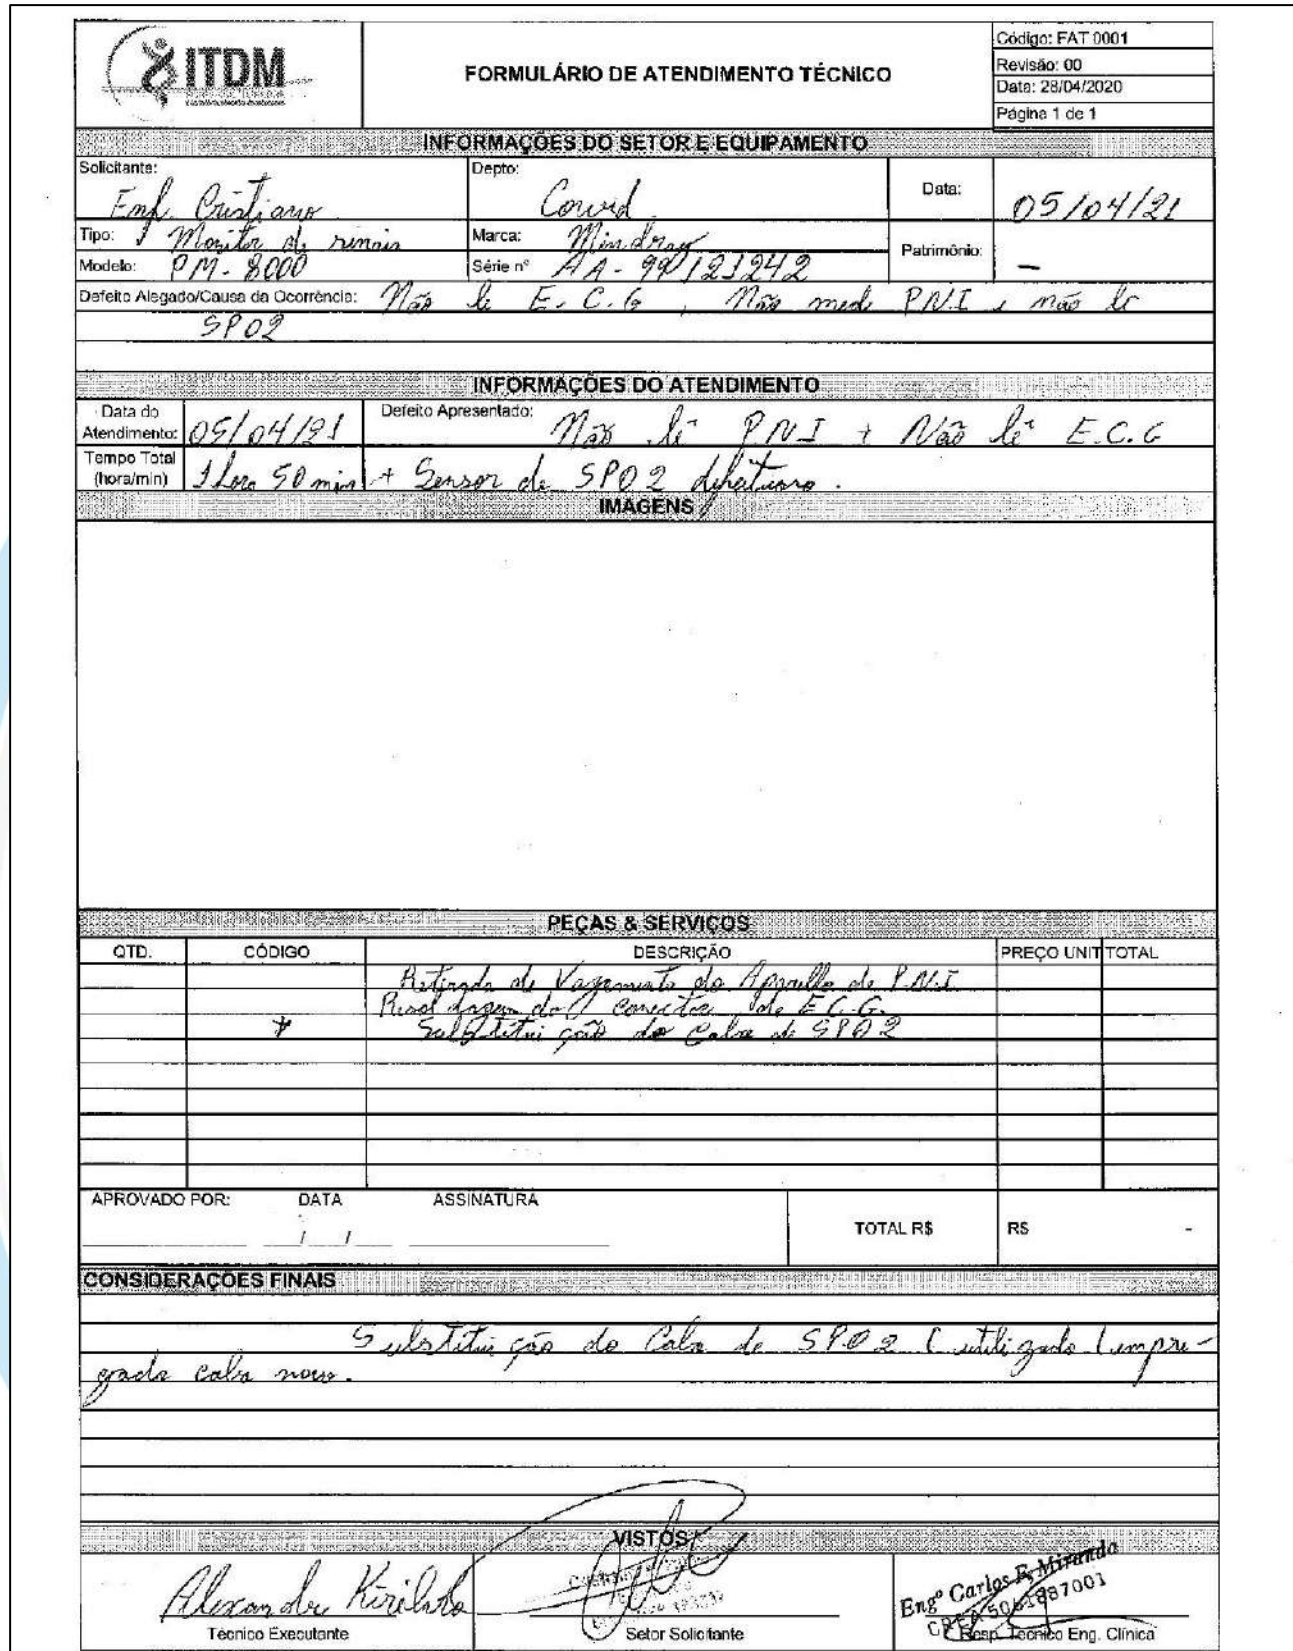 ITDM
FORMULÁRIO DE ATENDIMENTO TÉCNICO
Código: FAT 0001
Revisão: 00
Data: 28/04/2020
Página 1 de 1
INFORMAÇÕES DO SETOR E EQUIPAMENTO
Solicitante: Enf. Cristiano
Depto:
Data: 05/04/21
Tipo: Monitor de sinais
Marca: Mindray
Patrimônio: —
Modelo: PM-8000
Série nº AA-99121242
Defeito Alegado/Causa da Ocorrência: Não lê E.C.G, Não mede P.N.I e não lê
SPO2
INFORMAÇÕES DO ATENDIMENTO
Data do Atendimento: 05/04/21
Defeito Apresentado: Não lê P.N.I + Não lê E.C.G
Tempo Total (hora/min) 1 hora 50 min
+ Sensor de SPO2 defeituoso.
IMAGENS
PEÇAS & SERVIÇOS
QTD. CÓDIGO DESCRIÇÃO PREÇO UNIT TOTAL
Retirada de Vazamento do Aparelho de P.N.I
Resoldagem do conector de E.C.G.
Substituição do Cabo de SPO2
APROVADO POR: DATA ASSINATURA
/ /
TOTAL R$ R$ -
CONSIDERAÇÕES FINAIS
Substituição do Cabo de SPO2 (utilizado (empre-
gado cabo novo.
VISTOS
Alexandre
Engº Carlos R. Miranda
CREA 5061887001
Técnico Executante
Setor Solicitante
Resp. Técnico Eng. Clínica